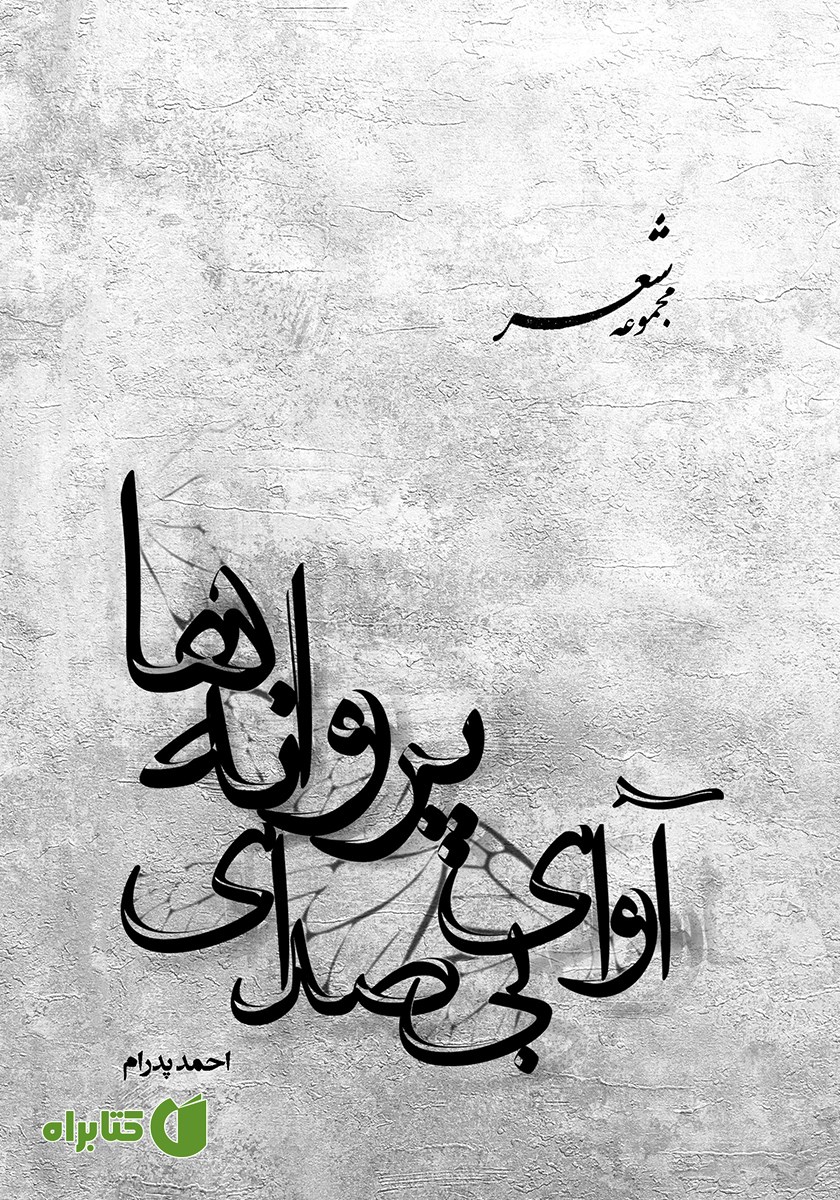 مجموعه شعر
آوای
بی‌صدای
پروانه‌ها
احمد پدرام
کتابراه